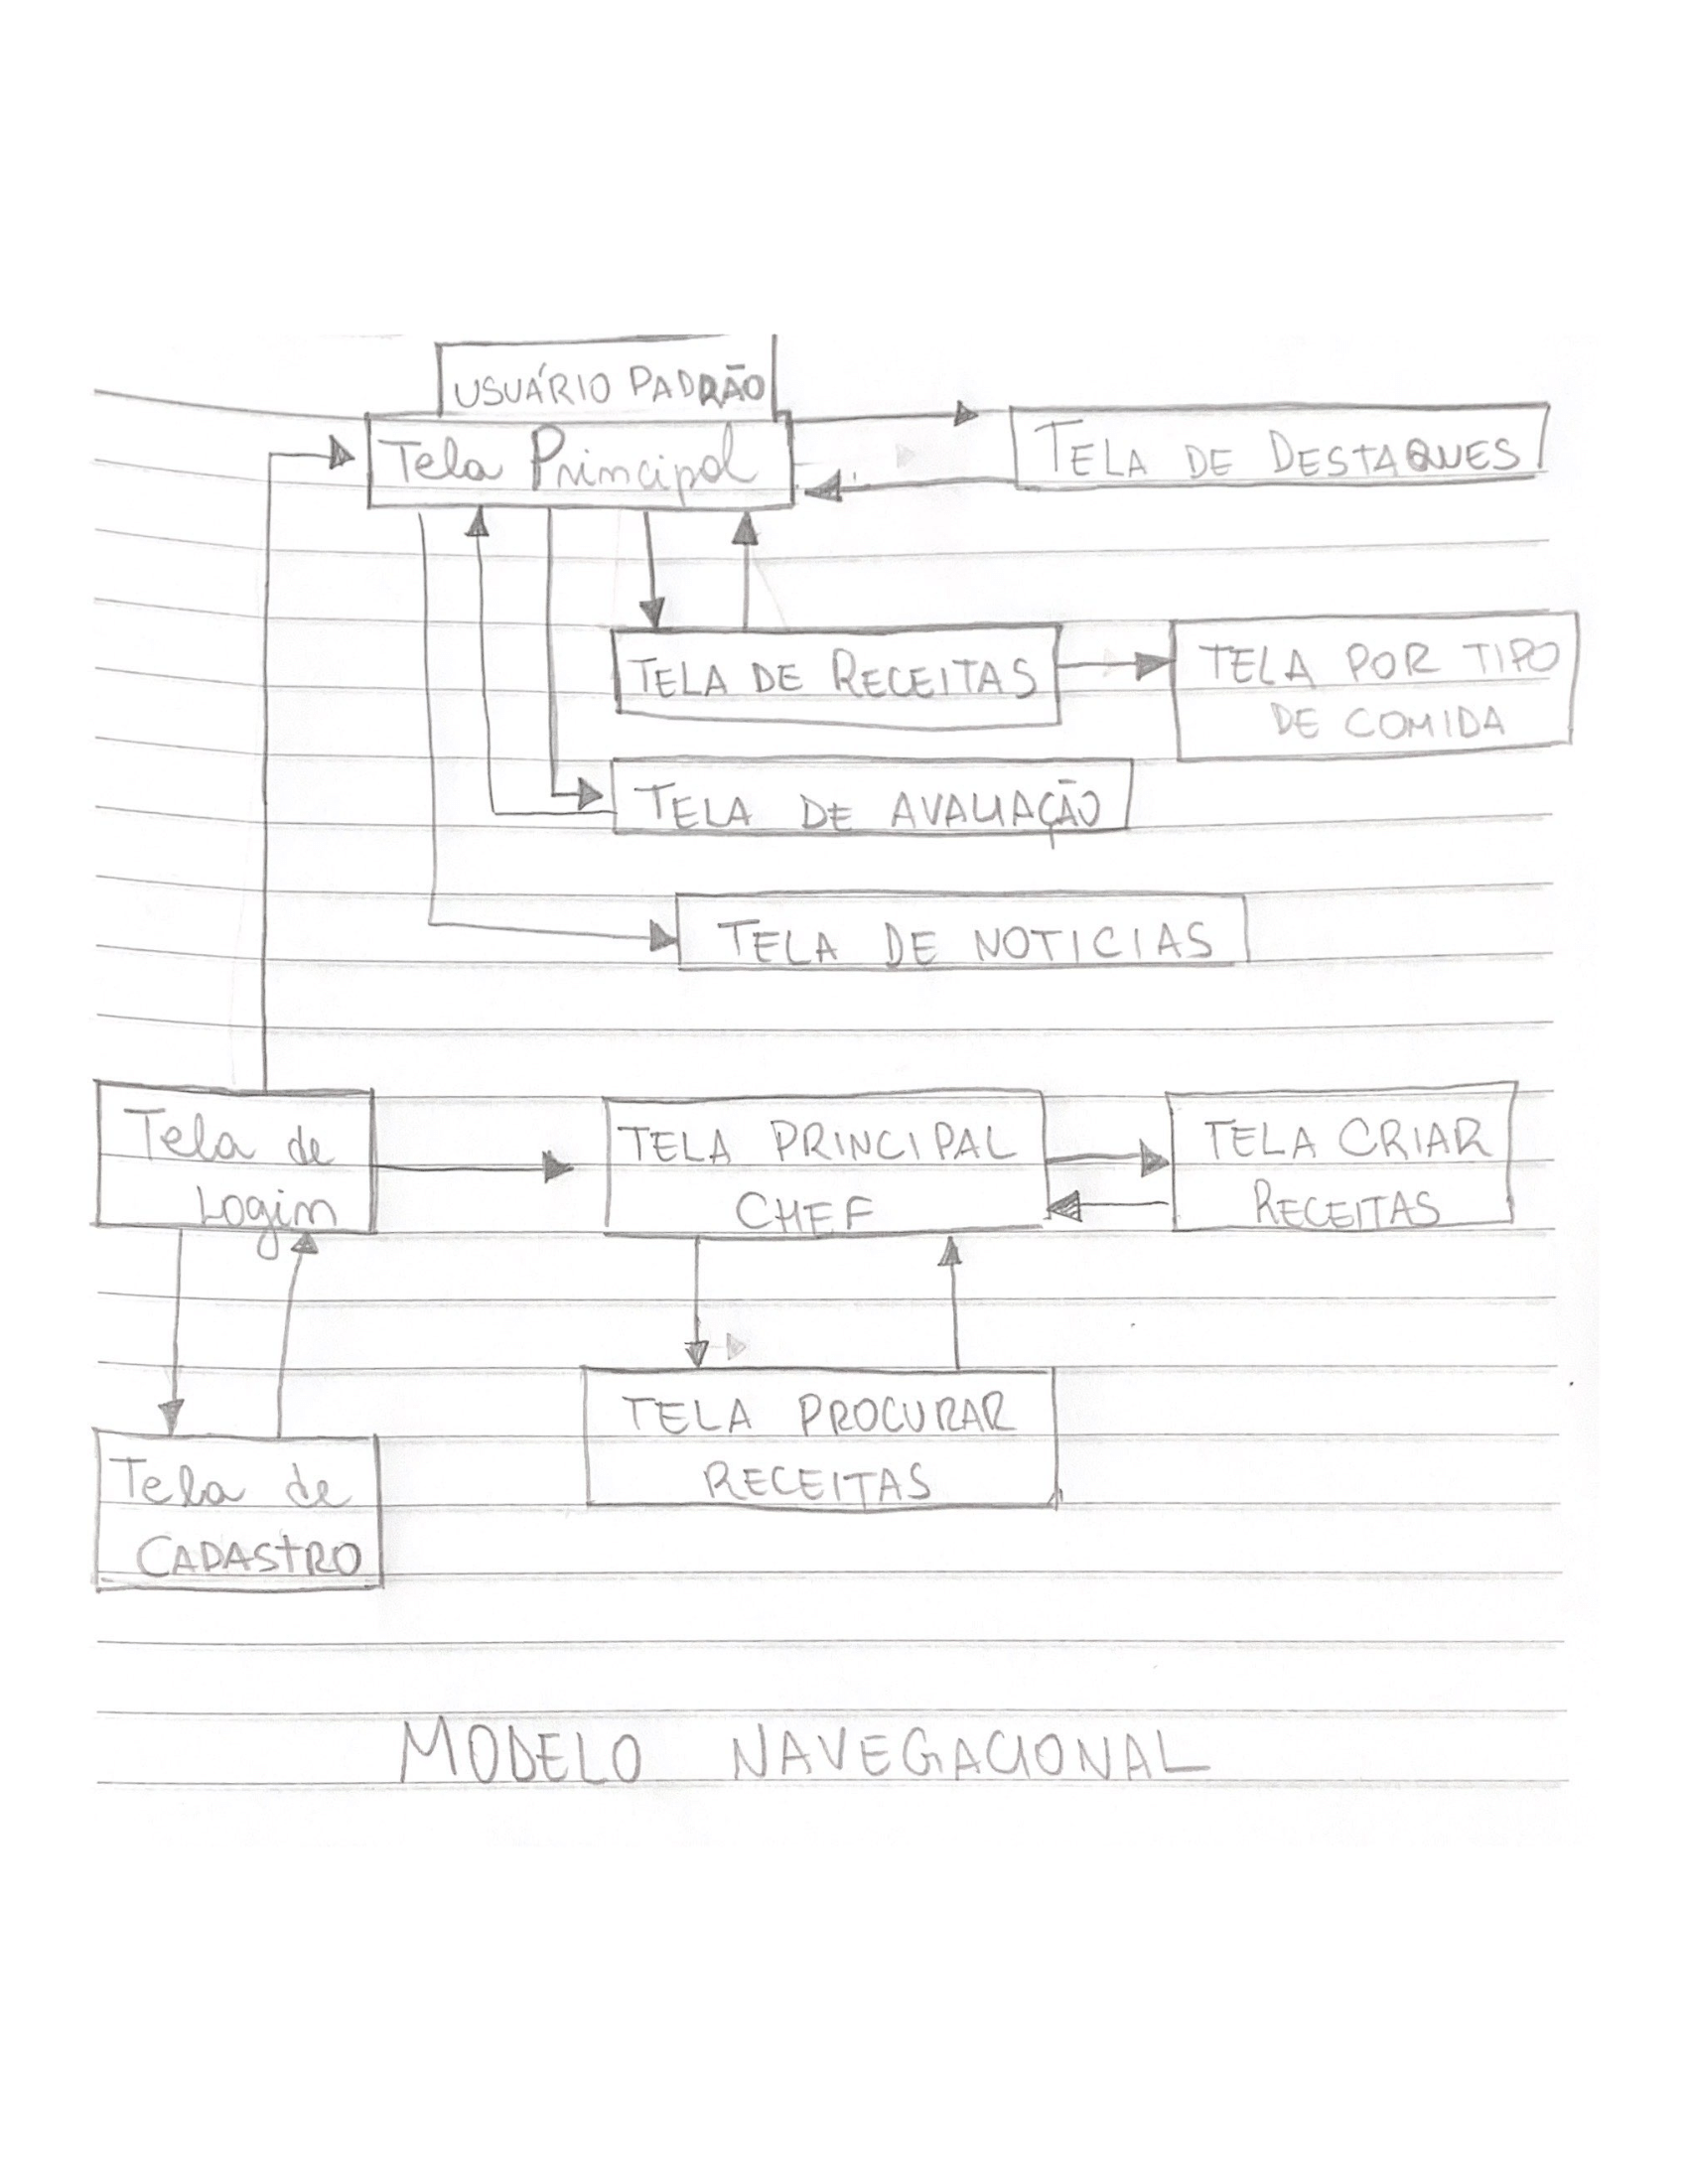 USUÁRIO PADRÃO
Tela Principal
TELA DE DESTAQUES
TELA DE RECEITAS
TELA POR TIPO
DE COMIDA
TELA DE AVALIAÇÃO
TELA DE NOTICIAS
Tela de
Login
TELA PRINCIPAL
CHEF
TELA CRIAR
RECEITAS
TELA PROCURAR
RECEITAS
Tela de
CADASTRO
MODELO NAVEGACIONAL